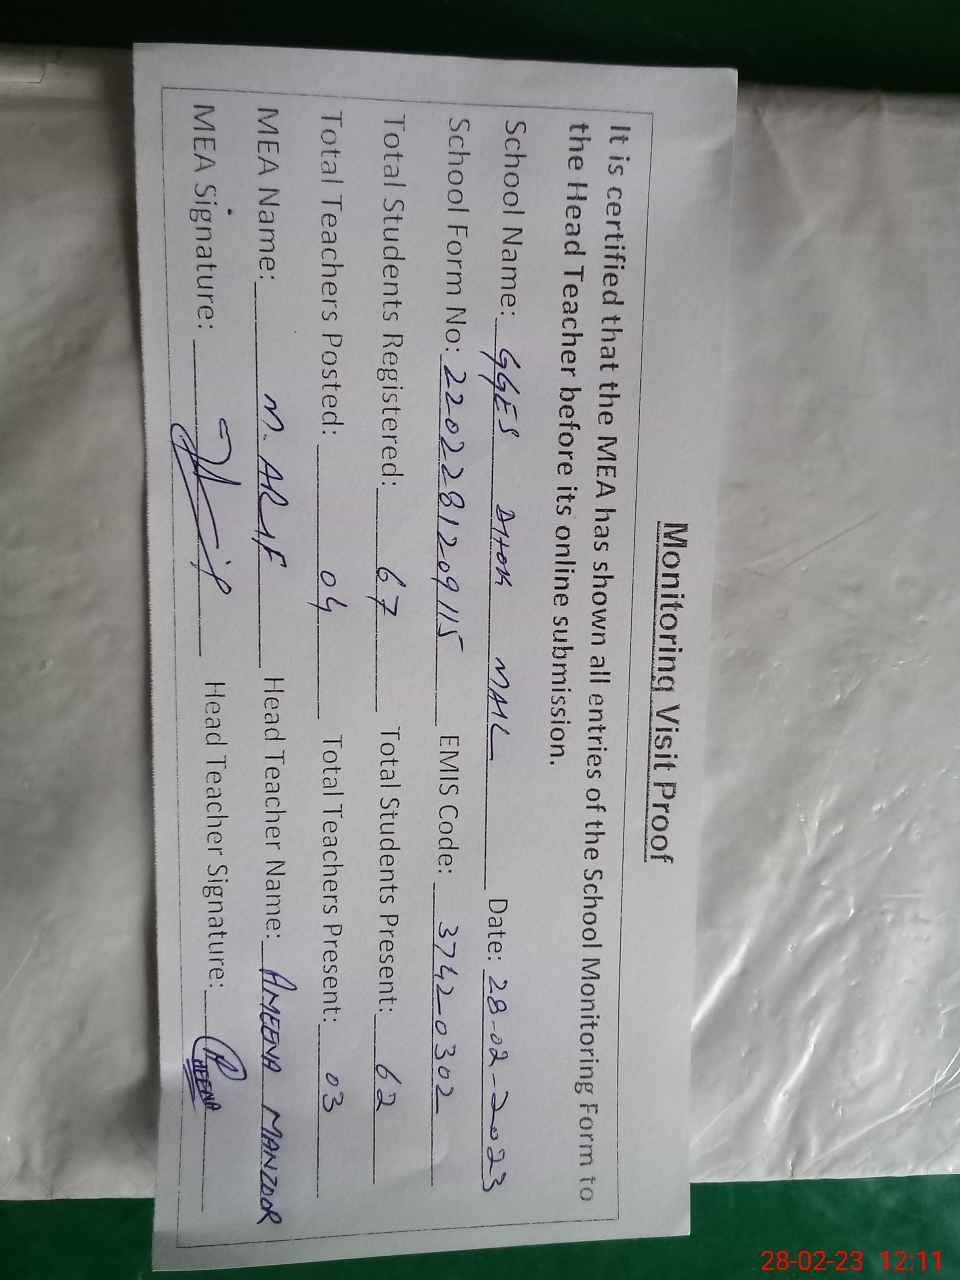 Monitoring Visit Proof
It is certified that the MEA has shown all entries of the School Monitoring Form to
the Head Teacher before its online submission.
School Name: GGES DHOK MAIL Date: 28-02-2023
School Form No: 2202281209115 EMIS Code: 37420302
Total Students Registered: 67 Total Students Present: 62
Total Teachers Posted: 04 Total Teachers Present: 03
MEA Name: M. ARIF Head Teacher Name: AMEENA MANZOOR
MEA Signature: Head Teacher Signature:
28-02-23 12:11